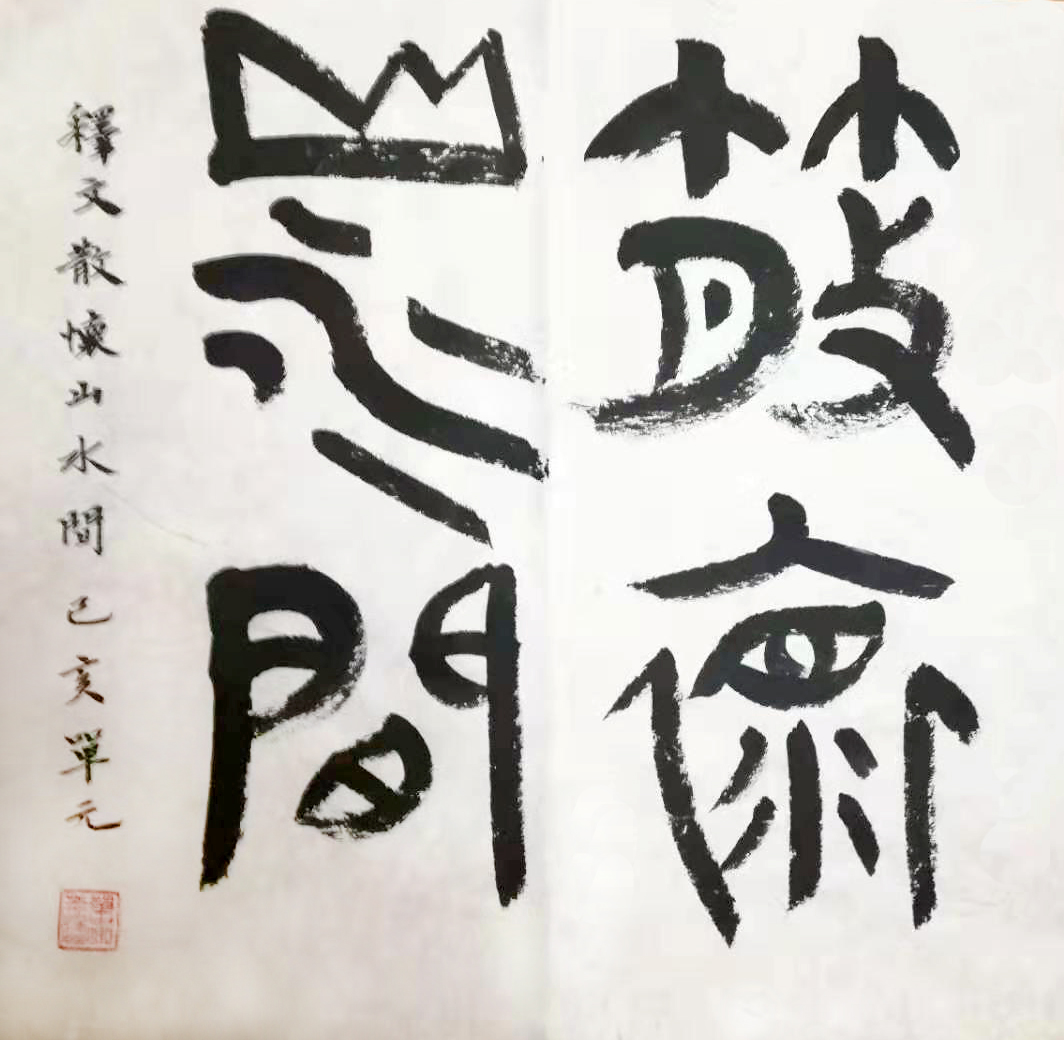 散懷
山水間
釋文散懷山水間己亥單元